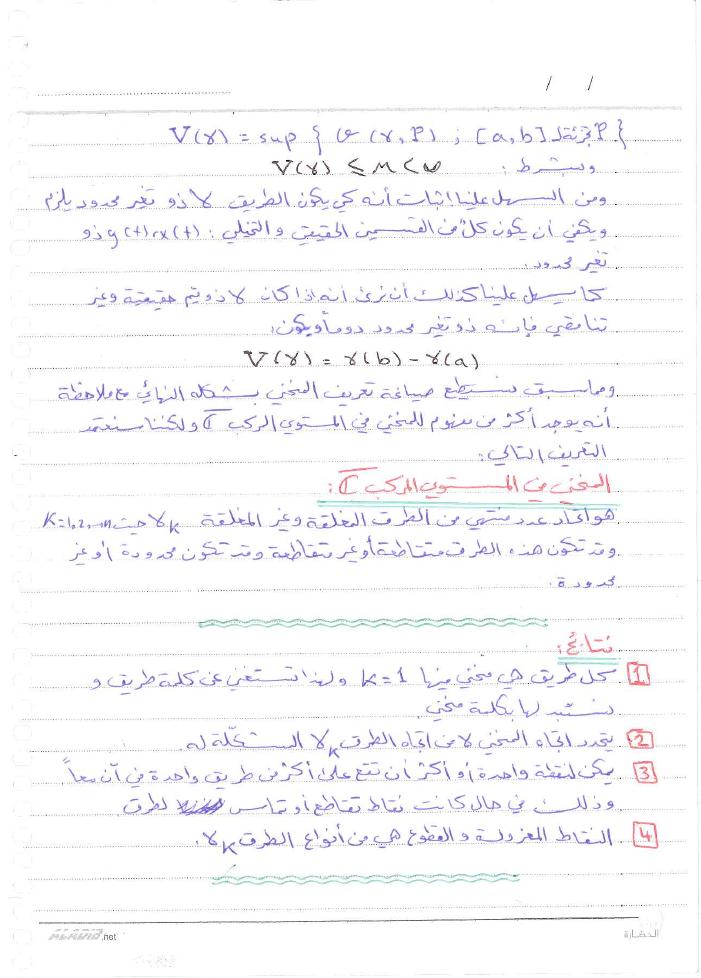 / /
V(γ) = sup { v(γ, P) ; [a,b] تجزئة لـ P }
وبشرط : V(γ) ≤ M < ∞
ومن السهل علينا اثبات أنه كي يكون الطريق γ ذو تغير محدود يلزم
ويكفي أن يكون كلاً من القسمين الحقيقي والتخيلي : y(t), x(t) ذو
تغير محدود.
كما يسهل علينا كذلك أن نرى أنه إذا كان γ ذو قيم حقيقية وغير
تناقصي فإنه ذو تغير محدود دوماً ويكون:
V(γ) = γ(b) - γ(a)
ومما سبق نستطيع صياغة تعريف المنحني بشكله النهائي مع ملاحظة
أنه يوجد أكثر من مفهوم للمنحني في المستوي المركب ℂ ولكننا سنعتمد
التعريف التالي:
المنحني في المستوي المركب ℂ:
هو اتحاد عدد منتهي من الطرق المغلقة وغير المغلقة γK حيث K=1,2,...,n
وقد تكون هذه الطرق متقاطعة أو غير متقاطعة وقد تكون محدودة أو غير
محدودة.
نتائج:
1 كل طريق هي منحني فيها K = 1 ولهذا نستغني عن كلمة طريق و
نستبدلها بكلمة منحني
2 يتحدد اتجاه المنحني γ من اتجاه الطرق γK المشكّلة له.
3 يمكن لنقطة واحدة أو أكثر أن تقع على أكثر من طريق واحدة في آن معاً
وذلك في حال كانت نقاط تقاطع أو تماس لطرق
4 النقاط المعزولة والقطوع هي من أنواع الطرق γK.
ALARD.net
الحضارة